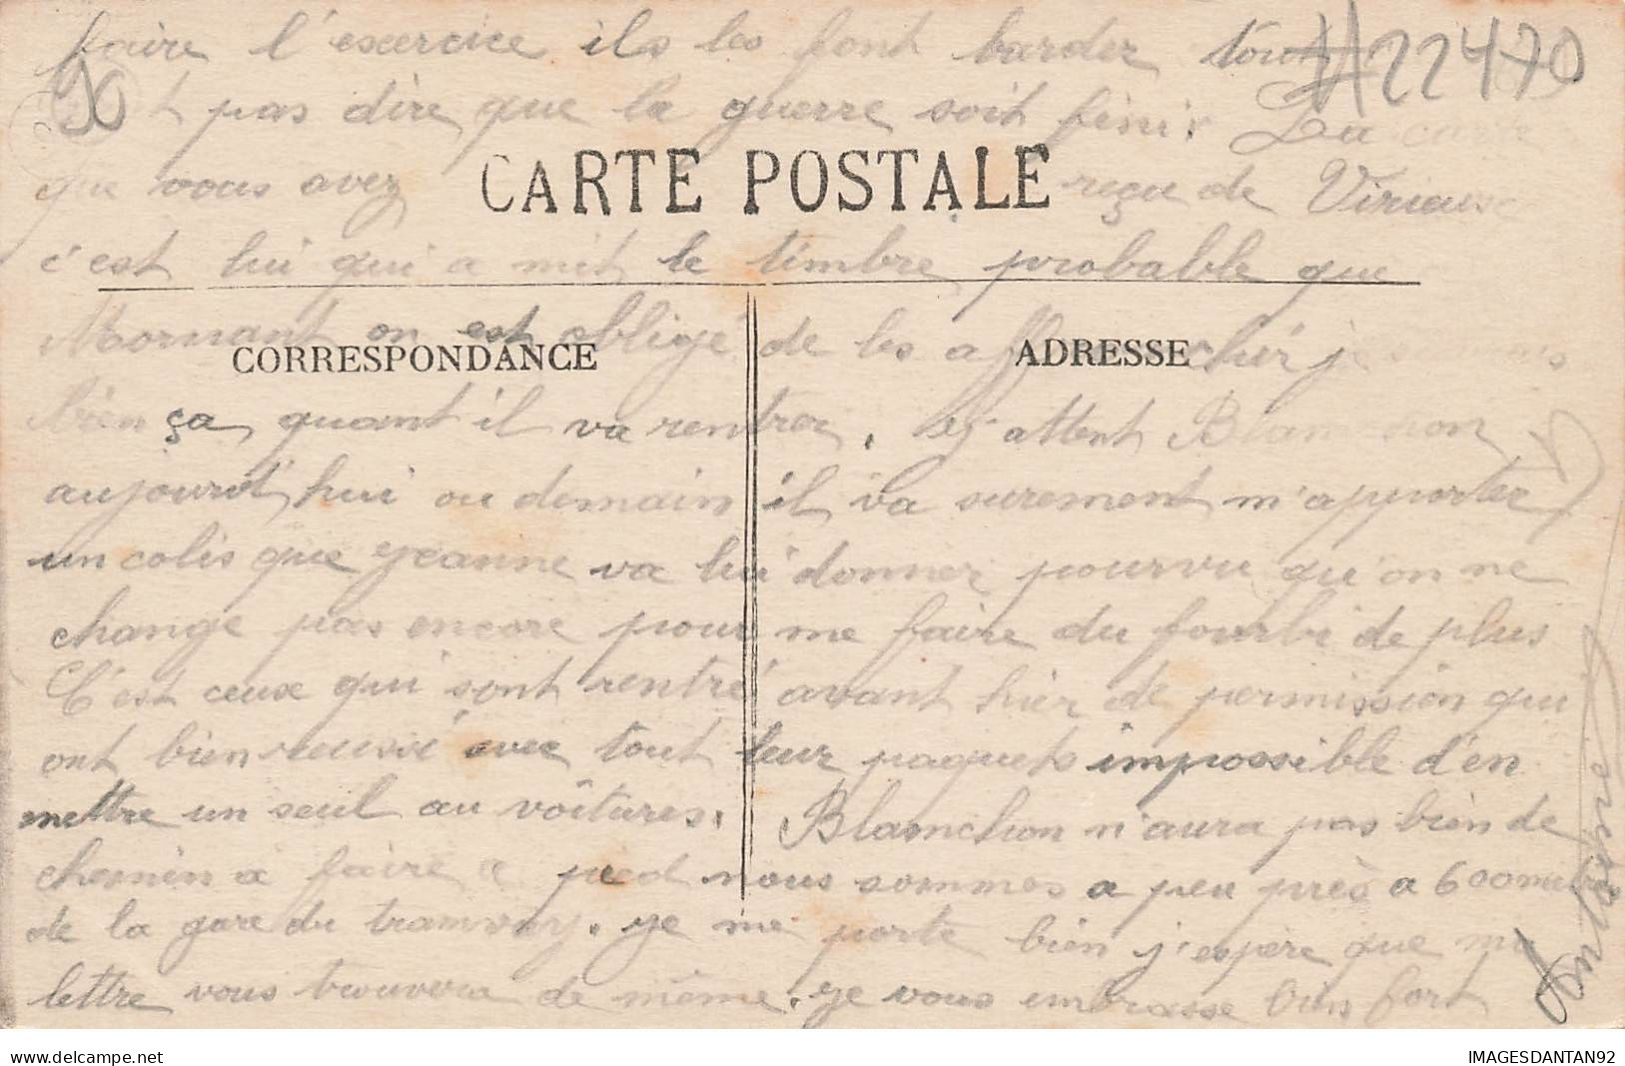 faire l'exercice ils les font barder tout
#22470
90
t pas dire que la guerre soit finir La carte
CARTE POSTALE
que vous avez reçu de Virieux
c'est lui qui a mit le timbre probable que
Mornant on est obligé de les affranchir je
CORRESPONDANCE
ADRESSE
bien ça, quant il va rentrer. j'attent Blanchon
aujourd'hui ou demain il va surement m'apporter
un colis que yeanne va lui donner pourvu qu'on ne
change pas encore pour me faire du fourbi de plus
C'est ceux qui sont rentré avant hier de permission qui
ont bien reussi avec tout leur paquets impossible d'en
mettre un seul au voitures. Blamchon n'aura pas bien de
chemin a faire a pied nous sommes a peu près a 600 metre
de la gare du tramway. ye me porte bien j'espère que ma
lettre vous trouvera de même. ye vous embrasse bien fort
IMAGESDANTAN92